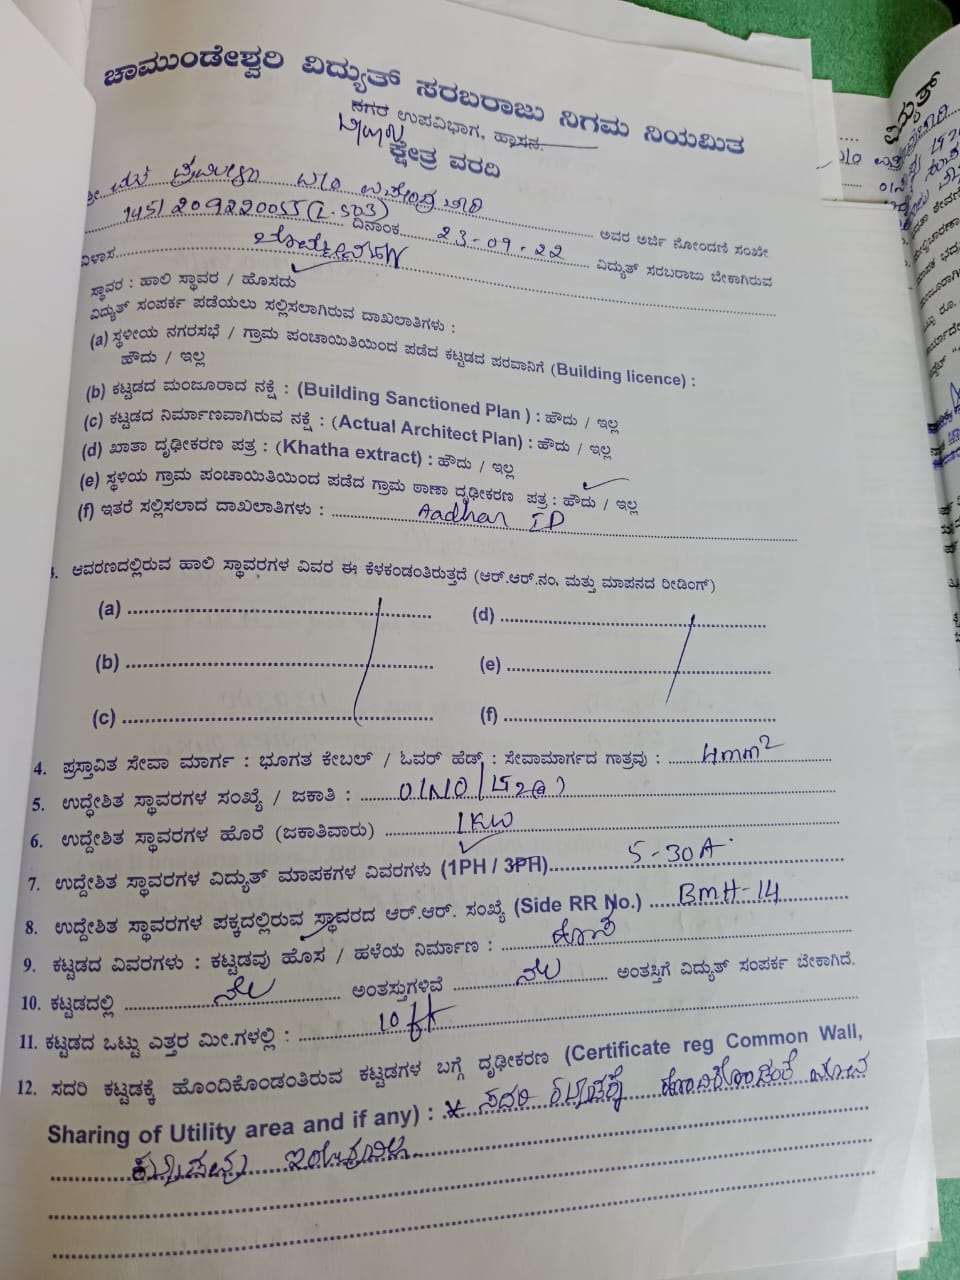 ಚಾಮುಂಡೇಶ್ವರಿ ವಿದ್ಯುತ್ ಸರಬರಾಜು ನಿಗಮ ನಿಯಮಿತ
ನಗರ ಉಪವಿಭಾಗ, ಹಾಸನ.
ಕ್ಷೇತ್ರ ವರದಿ
ಅವರ ಅರ್ಜಿ ನೋಂದಣಿ ಸಂಖೇ
ದಿನಾಂಕ 23-09-22 ವಿದ್ಯುತ್ ಸರಬರಾಜು ಬೇಕಾಗಿರುವ
ವಿಳಾಸ
ಸ್ಥಾವರ : ಹಾಲಿ ಸ್ಥಾವರ / ಹೊಸದು
ವಿದ್ಯುತ್ ಸಂಪರ್ಕ ಪಡೆಯಲು ಸಲ್ಲಿಸಲಾಗಿರುವ ದಾಖಲಾತಿಗಳು :
(a) ಸ್ಥಳೀಯ ನಗರಸಭೆ / ಗ್ರಾಮ ಪಂಚಾಯಿತಿಯಿಂದ ಪಡೆದ ಕಟ್ಟಡದ ಪರವಾನಿಗೆ (Building licence) :
ಹೌದು / ಇಲ್ಲ
(b) ಕಟ್ಟಡದ ಮಂಜೂರಾದ ನಕ್ಷೆ : (Building Sanctioned Plan ) : ಹೌದು / ಇಲ್ಲ
(c) ಕಟ್ಟಡದ ನಿರ್ಮಾಣವಾಗಿರುವ ನಕ್ಷೆ : (Actual Architect Plan) : ಹೌದು / ಇಲ್ಲ
(d) ಖಾತಾ ದೃಢೀಕರಣ ಪತ್ರ : (Khatha extract) : ಹೌದು / ಇಲ್ಲ
(e) ಸ್ಥಳಿಯ ಗ್ರಾಮ ಪಂಚಾಯಿತಿಯಿಂದ ಪಡೆದ ಗ್ರಾಮ ಠಾಣಾ ದೃಢೀಕರಣ ಪತ್ರ : ಹೌದು / ಇಲ್ಲ
(f) ಇತರೆ ಸಲ್ಲಿಸಲಾದ ದಾಖಲಾತಿಗಳು : Aadhar ID
3. ಆವರಣದಲ್ಲಿರುವ ಹಾಲಿ ಸ್ಥಾವರಗಳ ವಿವರ ಈ ಕೆಳಕಂಡಂತಿರುತ್ತದೆ (ಆರ್.ಆರ್.ನಂ. ಮತ್ತು ಮಾಪನದ ರೀಡಿಂಗ್)
(a) (d)
(b) (e)
(c) (f)
4. ಪ್ರಸ್ತಾವಿತ ಸೇವಾ ಮಾರ್ಗ : ಭೂಗತ ಕೇಬಲ್ / ಓವರ್ ಹೆಡ್ : ಸೇವಾಮಾರ್ಗದ ಗಾತ್ರವು : 4mm²
5. ಉದ್ಧೇಶಿತ ಸ್ಥಾವರಗಳ ಸಂಖ್ಯೆ / ಜಕಾತಿ : 01NO
6. ಉದ್ದೇಶಿತ ಸ್ಥಾವರಗಳ ಹೊರೆ (ಜಕಾತಿವಾರು) 1KW
7. ಉದ್ದೇಶಿತ ಸ್ಥಾವರಗಳ ವಿದ್ಯುತ್ ಮಾಪಕಗಳ ವಿವರಗಳು (1PH / 3PH) 5-30A
8. ಉದ್ದೇಶಿತ ಸ್ಥಾವರಗಳ ಪಕ್ಕದಲ್ಲಿರುವ ಸ್ಥಾವರದ ಆರ್.ಆರ್. ಸಂಖ್ಯೆ (Side RR No.) BMH-14
9. ಕಟ್ಟಡದ ವಿವರಗಳು : ಕಟ್ಟಡವು ಹೊಸ / ಹಳೆಯ ನಿರ್ಮಾಣ :
10. ಕಟ್ಟಡದಲ್ಲಿ ನೆಲ ಅಂತಸ್ತುಗಳಿವೆ ನೆಲ ಅಂತಸ್ತಿಗೆ ವಿದ್ಯುತ್ ಸಂಪರ್ಕ ಬೇಕಾಗಿದೆ.
11. ಕಟ್ಟಡದ ಒಟ್ಟು ಎತ್ತರ ಮೀ.ಗಳಲ್ಲಿ : 10 ft
12. ಸದರಿ ಕಟ್ಟಡಕ್ಕೆ ಹೊಂದಿಕೊಂಡಂತಿರುವ ಕಟ್ಟಡಗಳ ಬಗ್ಗೆ ದೃಢೀಕರಣ (Certificate reg Common Wall,
Sharing of Utility area and if any) : ಸದರಿ ಕಟ್ಟಡಕ್ಕೆ ಹೊಂದಿಕೊಂಡಂತೆ ಯಾವ
ಕಟ್ಟಡವು ಇರುವುದಿಲ್ಲ